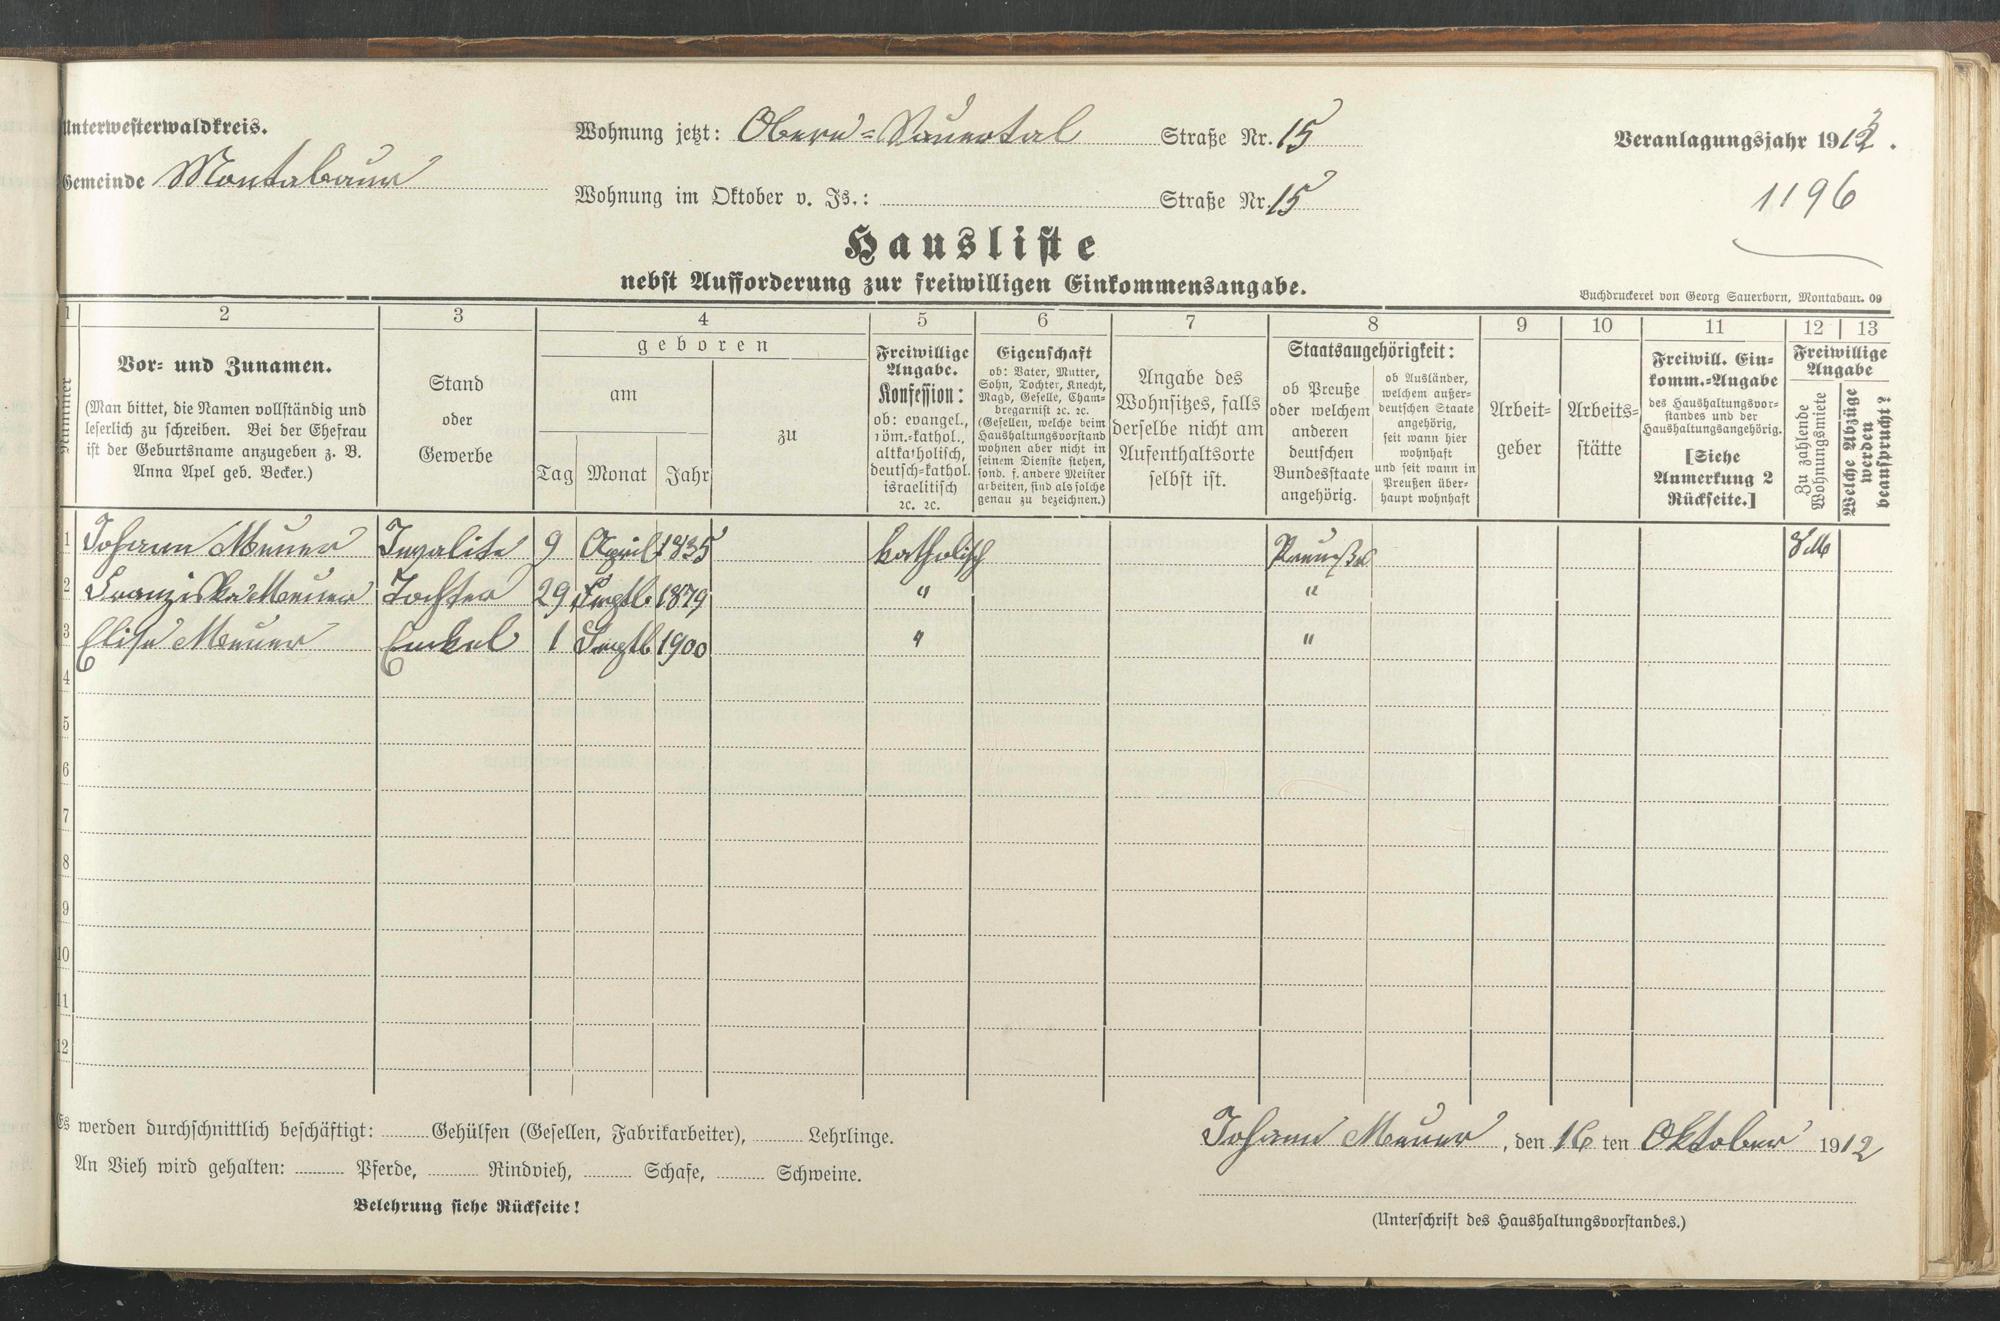 Unterwesterwaldkreis.
Wohnung jetzt: Obere=Sauertal Straße Nr. 15
Veranlagungsjahr 1913.
Gemeinde Montabaur
Wohnung im Oktober v. Js.: Straße Nr. 15
1196
Hausliste
nebst Aufforderung zur freiwilligen Einkommensangabe.
Buchdruckerei von Georg Sauerborn, Montabaur. 09
1 2 3 4 5 6 7 8 9 10 11 12 13
Nummer
Vor- und Zunamen.
(Man bittet, die Namen vollständig und
leserlich zu schreiben. Bei der Ehefrau
ist der Geburtsname anzugeben z. B.
Anna Apel geb. Becker.)
Stand
oder
Gewerbe
geboren
am
Tag Monat Jahr
zu
Freiwillige
Angabe.
Konfession:
ob: evangel.,
röm.-kathol.,
altkatholisch,
deutsch-kathol.
israelitisch
ꝛc. ꝛc.
Eigenschaft
ob: Vater, Mutter,
Sohn, Tochter, Knecht,
Magd, Geselle, Cham-
bregarnist ꝛc. ꝛc.
(Gesellen, welche beim
Haushaltungsvorstand
wohnen aber nicht in
seinem Dienste stehen,
sond. f. andere Meister
arbeiten, sind als solche
genau zu bezeichnen.)
Angabe des
Wohnsitzes, falls
derselbe nicht am
Aufenthaltsorte
selbst ist.
Staatsangehörigkeit:
ob Preuße
oder welchem
anderen
deutschen
Bundesstaate
angehörig.
ob Ausländer,
welchem außer-
deutschen Staate
angehörig,
seit wann hier
wohnhaft
und seit wann in
Preußen über-
haupt wohnhaft
Arbeit-
geber
Arbeits-
stätte
Freiwill. Ein-
komm.-Angabe
des Haushaltungsvor-
standes und der
Haushaltungsangehörig.
[Siehe
Anmerkung 2
Rückseite.]
Freiwillige
Angabe
Zu zahlende
Wohnungsmiete
Welche Abzüge
werden
beansprucht?
1 Johann Meurer Invalide 9 April 1835 katholisch Preuße
2 Franziska Meurer Tochter 29 Septb. 1879 " "
3 Elise Meurer Enkel 1 Septb 1900 " "
4
5
6
7
8
9
10
11
12
Es werden durchschnittlich beschäftigt: Gehülfen (Gesellen, Fabrikarbeiter), Lehrlinge.
Johann Meurer, den 16 ten Oktober 1912
An Vieh wird gehalten: Pferde, Rindvieh, Schafe, Schweine.
Belehrung siehe Rückseite!
(Unterschrift des Haushaltungsvorstandes.)